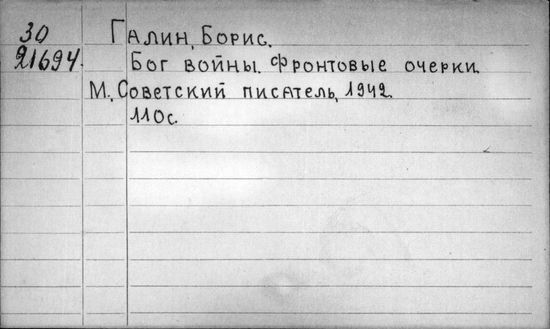 30 Галин, Борис.
21694. Бог войны. Фронтовые очерки.
М., Советский писатель, 1942.
110с.